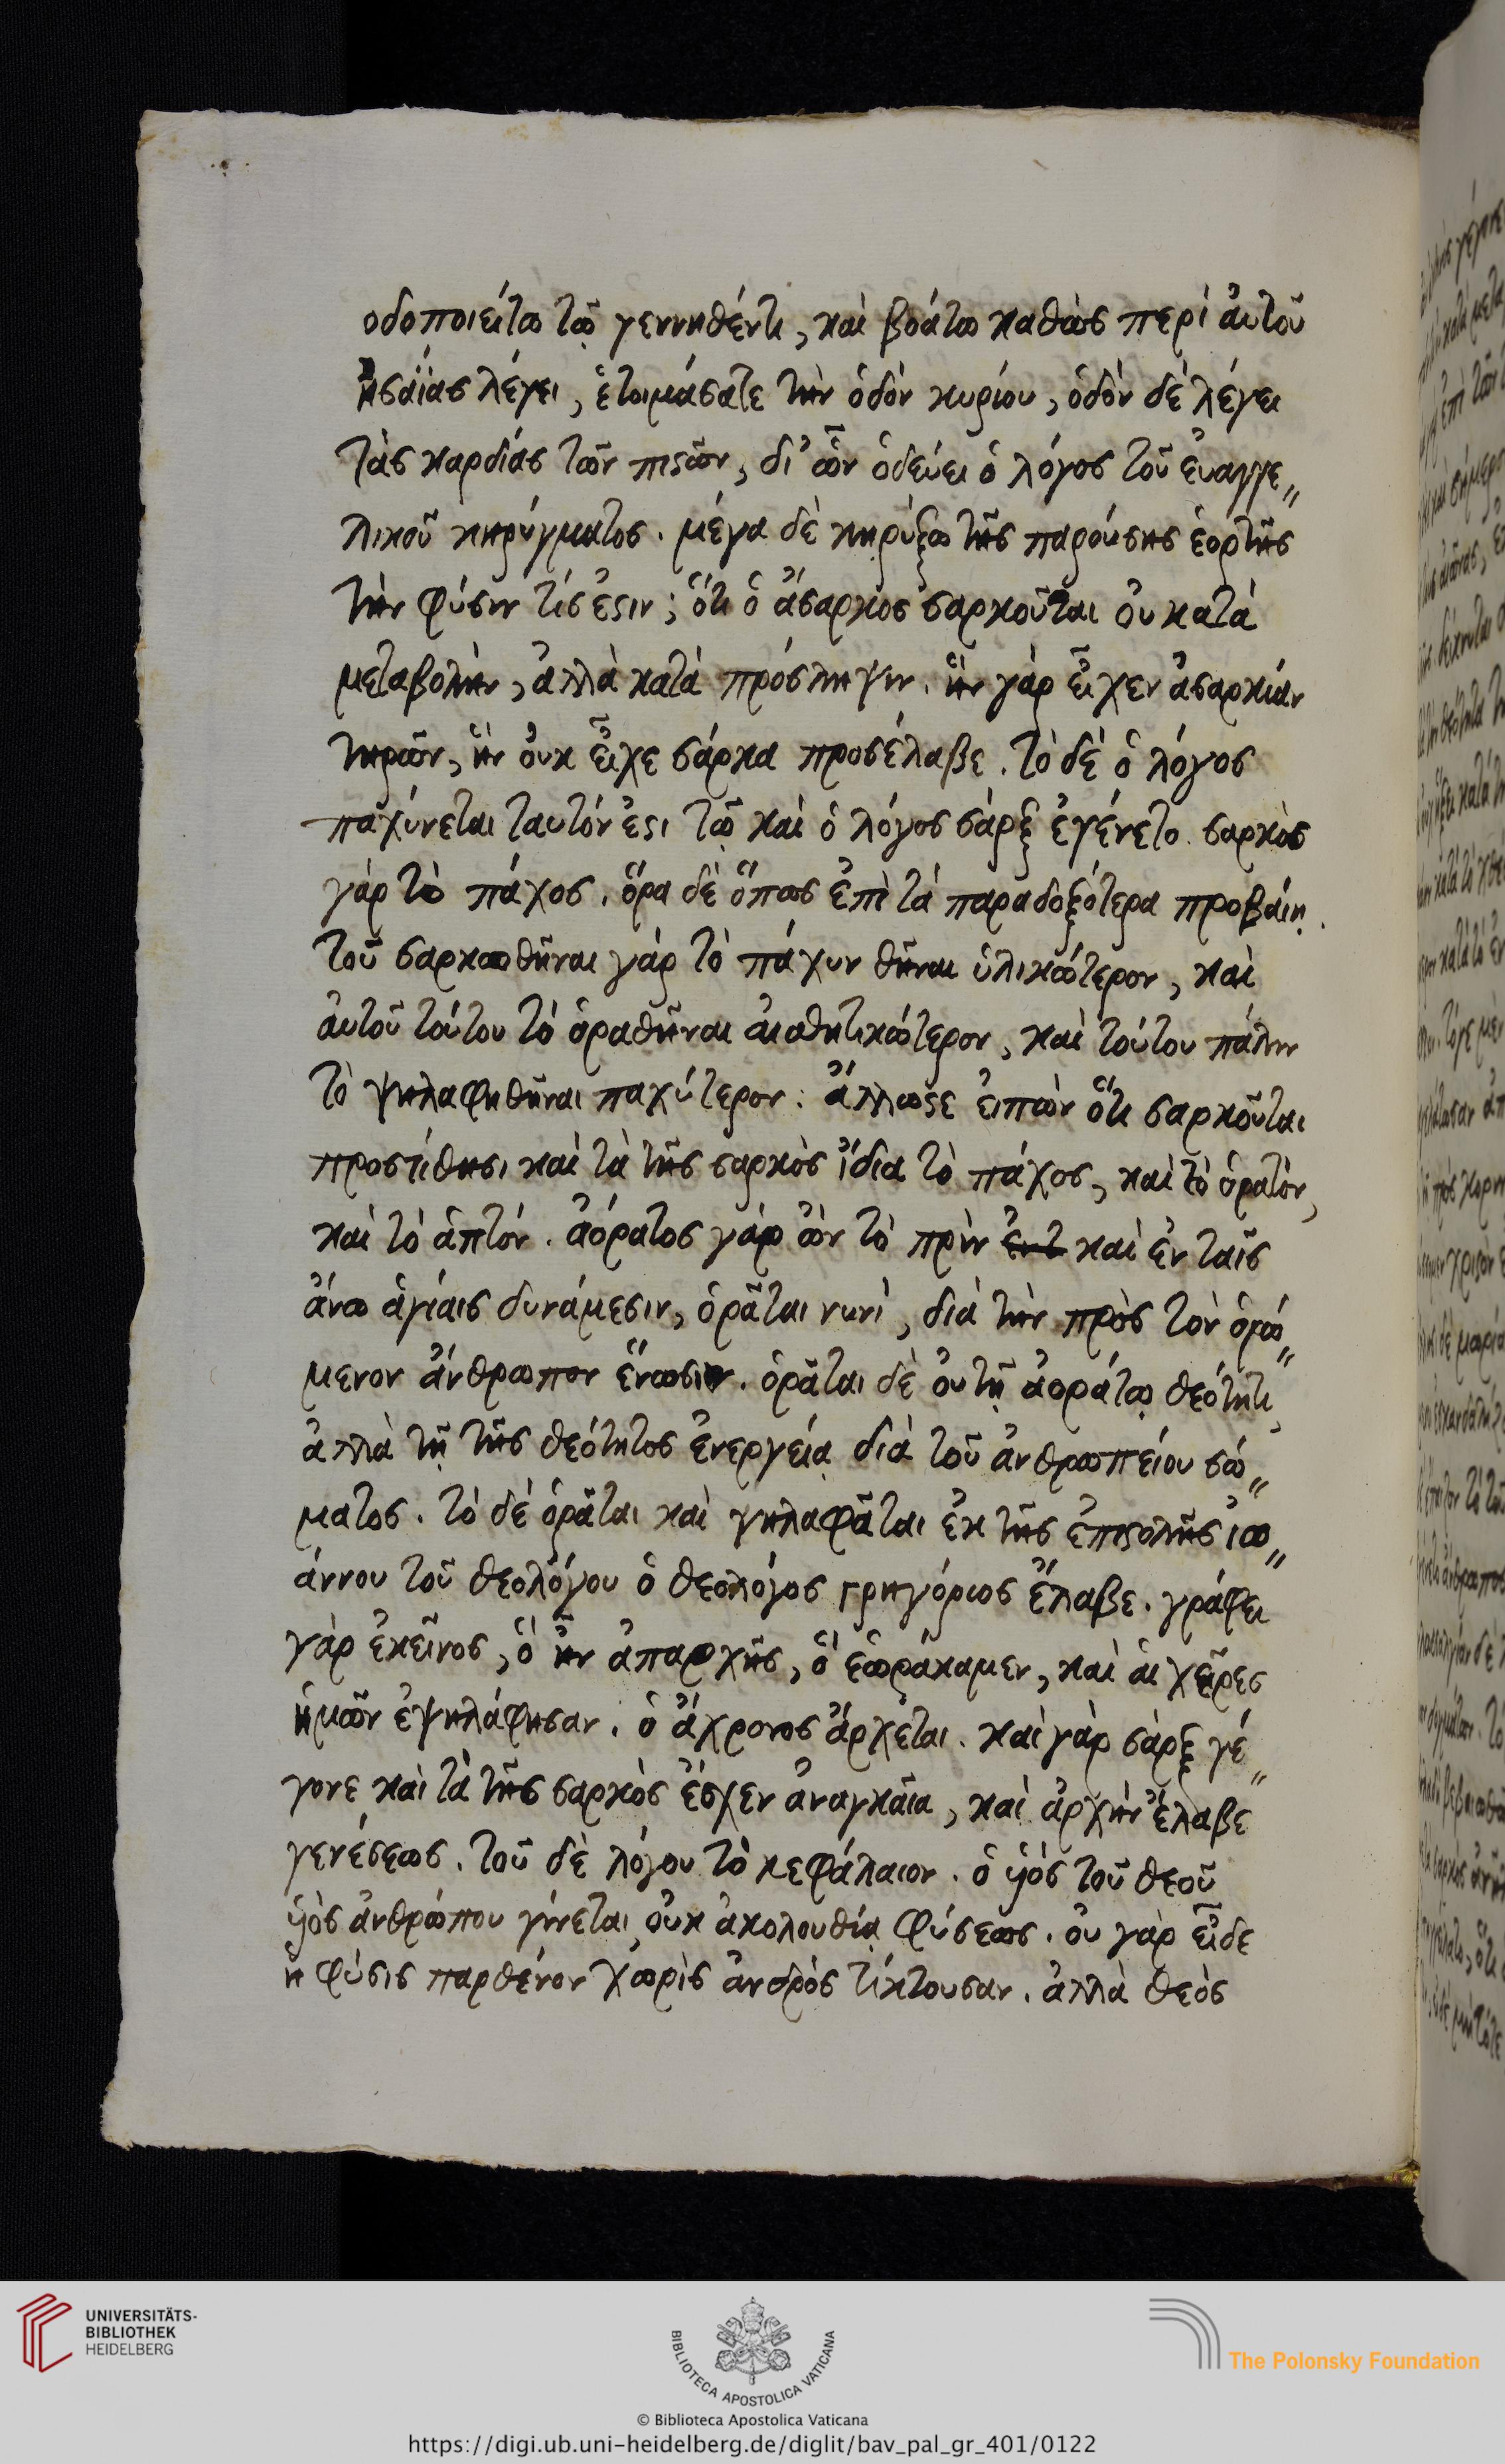 οδοποιείτω τῶ γεννηθέντι, καὶ βοάτω καθὼς περὶ ἀυτοῦ
ἡσαΐας λέγει, ἑτοιμάσατε τὴν ὁδὸν κυρίου, ὁδὸν δὲ λέγει
τὰς καρδίας τῶν πιϛῶν, δι' ὧν ὁδεύει ὁ λόγος τοῦ ἐυαγγε„
λικοῦ κηρύγματος. μέγα δὲ κηρύξω τῆς παρούσης ἑορτῆς
τὴν φύσιν τίς ἐϛιν; ὅτι ὁ ἄσαρκος σαρκοῦται ὀυ κατὰ
μεταβολὴν, ἀλλὰ κατὰ πρόσληψιν. ἣν γὰρ εἶχεν ἀσαρκίαν
τηρῶν, ἣν ὀυκ εἶχε σάρκα προσέλαβε. τὸ δὲ ὁ λόγος
παχύνεται ταυτόν ἐϛι τῶ καὶ ὁ λόγος σὰρξ ἐγένετο. σαρκὸς
γὰρ τὸ πάχος. ὅρα δὲ ὅπως ἐπὶ τὰ παραδοξότερα προβάιη.
τοῦ σαρκωθῆναι γὰρ τὸ πάχυν θῆναι ὑλικώτερον, καὶ
ἀυτοῦ τούτου τὸ ὁραθῆναι αισθητικώτερον, καὶ τούτου πάλιν
τὸ ψηλαφηθῆναι παχύτερον. ἄλλωϛε ἐιπὼν ὅτι σαρκοῦται
προστίθησι καὶ τὰ τῆς σαρκὸς ἴδια τὸ πάχος, καὶ τὸ ὁρατὸν,
καὶ τὸ ἁπτόν. ἀόρατος γὰρ ὢν τὸ πρὶν ἐντ καὶ ἐν ταῖς
ἄνω ἁγίαις δυνάμεσιν, ὁρᾶται νυνὶ, διὰ τὴν πρὸς τὸν ὁρώ„
μενον ἄνθρωπον ἕνωσιν. ὁρᾶται δὲ ὀυ τῇ ἀοράτω θεότητι,
ἀλλὰ τῇ τῆς θεότητος ἐνεργείᾳ διὰ τοῦ ἀνθρωπείου σώ„
ματος. τὸ δὲ ὁρᾶται καὶ ψηλαφᾶται ἐκ τῆς ἐπιϛολῆς ἰω„
άννου τοῦ θεολόγου ὁ θεολόγος γρηγόριος ἔλαβε. γράφει
γὰρ ἐκεῖνος, ὃ ἦν ἀπαρχῆς, ὃ ἑωράκαμεν, καὶ ἁι χεῖρες
ἡμῶν ἐψηλάφησαν. ὁ ἄχρονος ἄρχεται. καὶ γὰρ σὰρξ γέ„
γονε καὶ τὰ τῆς σαρκὸς ἔσχεν ἀναγκαῖα, καὶ ἀρχὴν ἔλαβε
γενέσεως. τοῦ δὲ λόγου τὸ κεφάλαιον. ὁ ὑιὸς τοῦ θεοῦ
ὑιὸς ἀνθρώπου γίνεται, ὀυκ ἀκολουθίᾳ φύσεως. ὀυ γὰρ εἶδε
ἡ φύσις παρθένον χωρὶς ἀνδρὸς τίκτουσαν. ἀλλὰ θεὸς
UNIVERSITÄTS-
BIBLIOTHEK
HEIDELBERG
BIBLIOTECA APOSTOLICA VATICANA
The Polonsky Foundation
© Biblioteca Apostolica Vaticana
https://digi.ub.uni-heidelberg.de/diglit/bav_pal_gr_401/0122